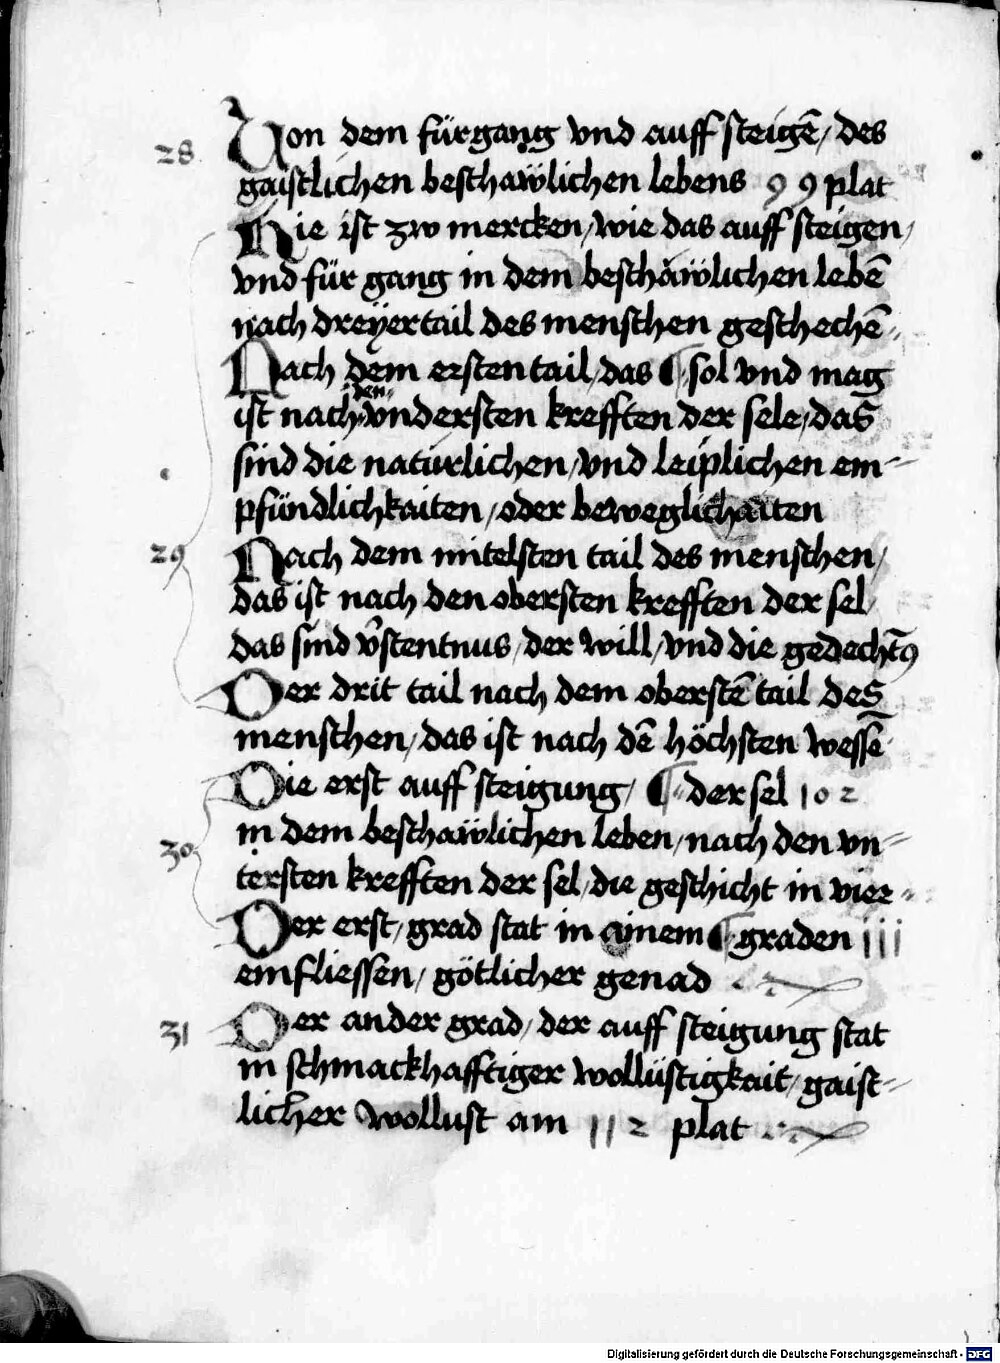 28 Von dem fürgang vnd auff steigē / des
gaistlichen beschawlichen lebens 99 plat
Hie ist zw mercken / wie das auff steigen /
vnd für gang in dem beschawlichen lebē
nach dreyer tail des menschen geschechē
Nach dem ersten tail / das ¶ sol vnd mag
ist nach den vndersten krefften der sele / das
sind die naturlichen / vnd leiplichen em=
pfündlichkaiten / oder beweglichaiten
29 Nach dem mitelsten tail des menschen /
das ist nach den obersten krefften der sel /
das sind v̄stentnus / der will / vnd die gedecht̄9
Der drit tail nach dem oberstē tail des
menschen / das ist nach dē höchsten wessē
Die erst auff steigung / ¶ der sel 102
in dem beschawlichen leben / nach den vn=
30 tersten krefften der sel / die geschicht in vier
Der erst / grad stat in ainem ¶ graden 111
einfliessen / götlicher genad
31 Der ander grad / der auff steigung stat
in schmackhafftiger wollüstigkait / gaist=
licher wollust am 112 plat
Digitalisierung gefördert durch die Deutsche Forschungsgemeinschaft - DFG